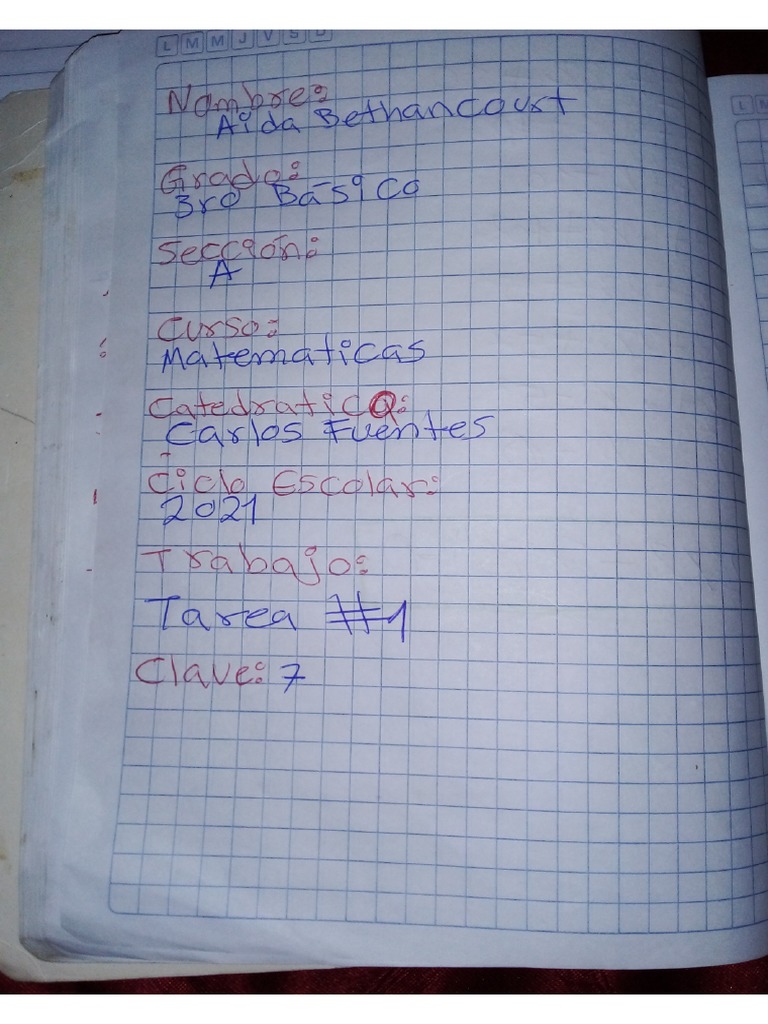 L M M J V S D
Nombre:
Aida Bethancourt
Grado:
3ro Básico
Sección:
A
Curso:
Matematicas
Catedratico:
Carlos Fuentes
Ciclo Escolar:
2021
Trabajo:
Tarea #1
Clave: 7
L M